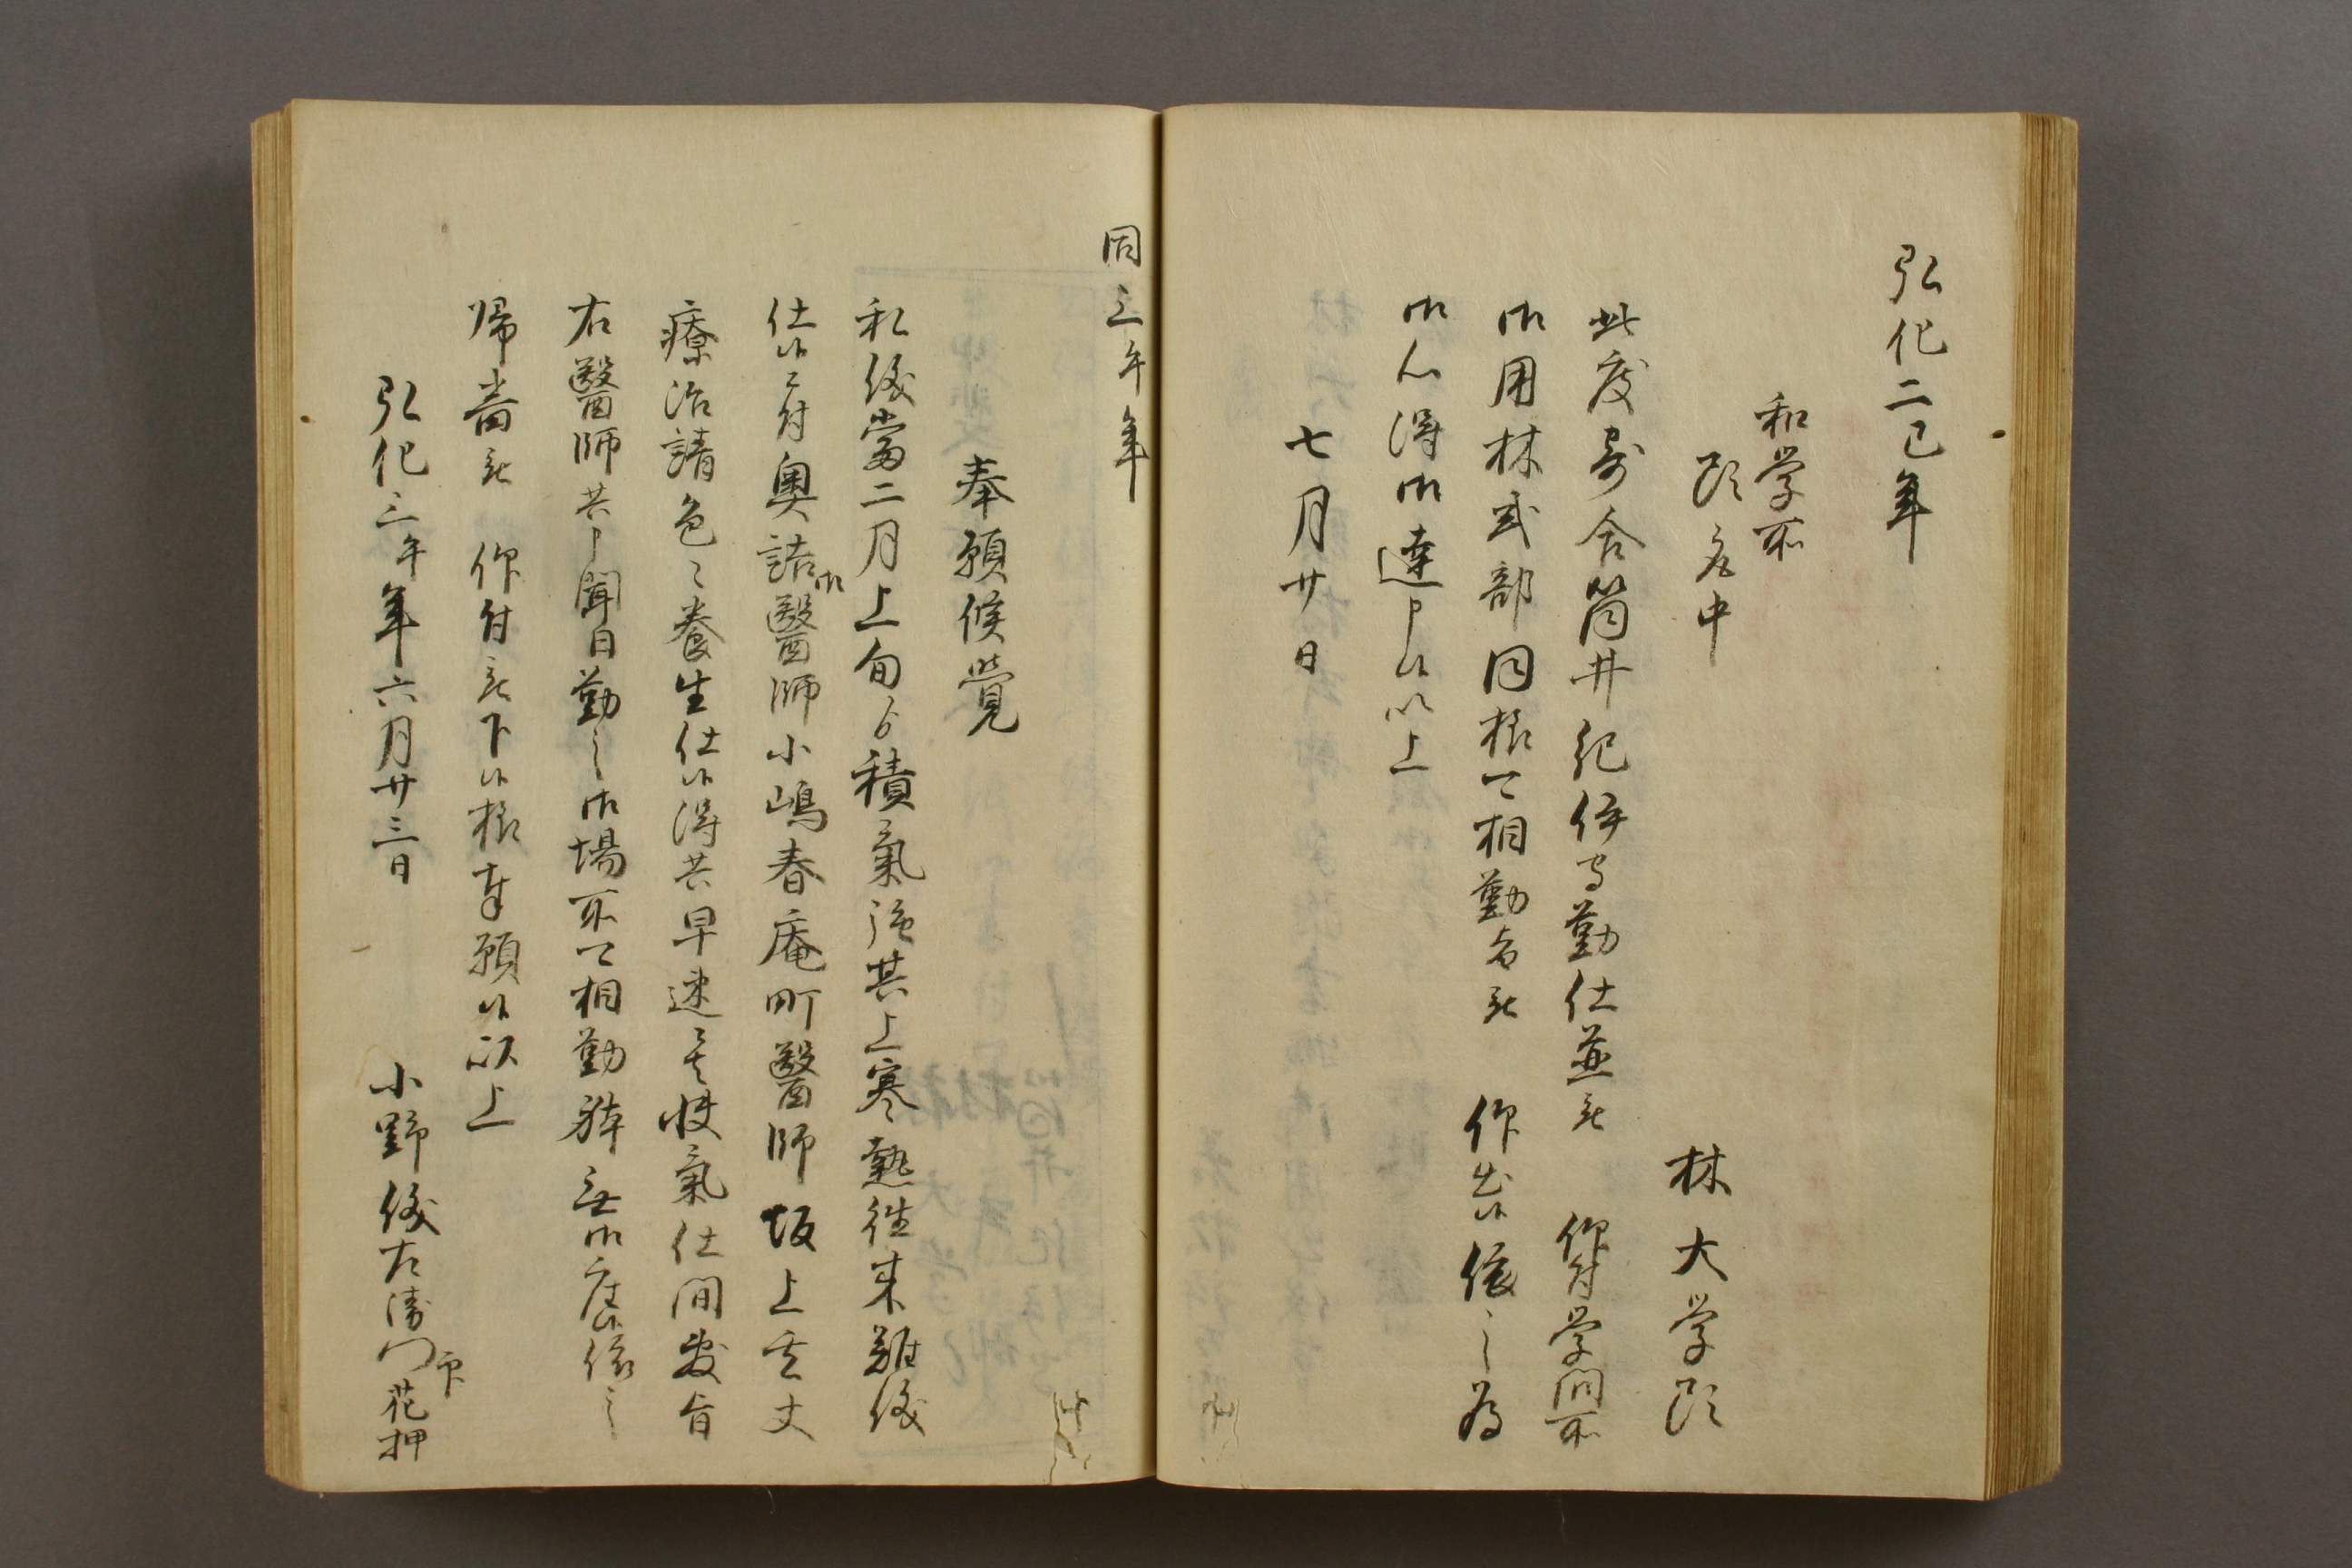 弘化二巳年
和学所
頭衆中
林大学頭
此度寄合筒井紀伊守勤仕並被　仰付学問所
御用林式部同様可相勤旨被　仰出候依之為
御心得御達申候以上
七月廿日
同三午年
奉願候覚
私儀当二月上旬ゟ積氣強其上寒熱往来難儀
仕候ニ付奥詰御醫師小嶋春庵町醫師坂上玄丈
療治請色々養生仕候得共早速ニ者快氣仕間敷旨
右醫師共申聞日勤之御場所可相勤躰無御座候依之
帰番被　仰付被下候様奉願候以上
弘化三午年六月廿三日
小野儀左衛門印花押